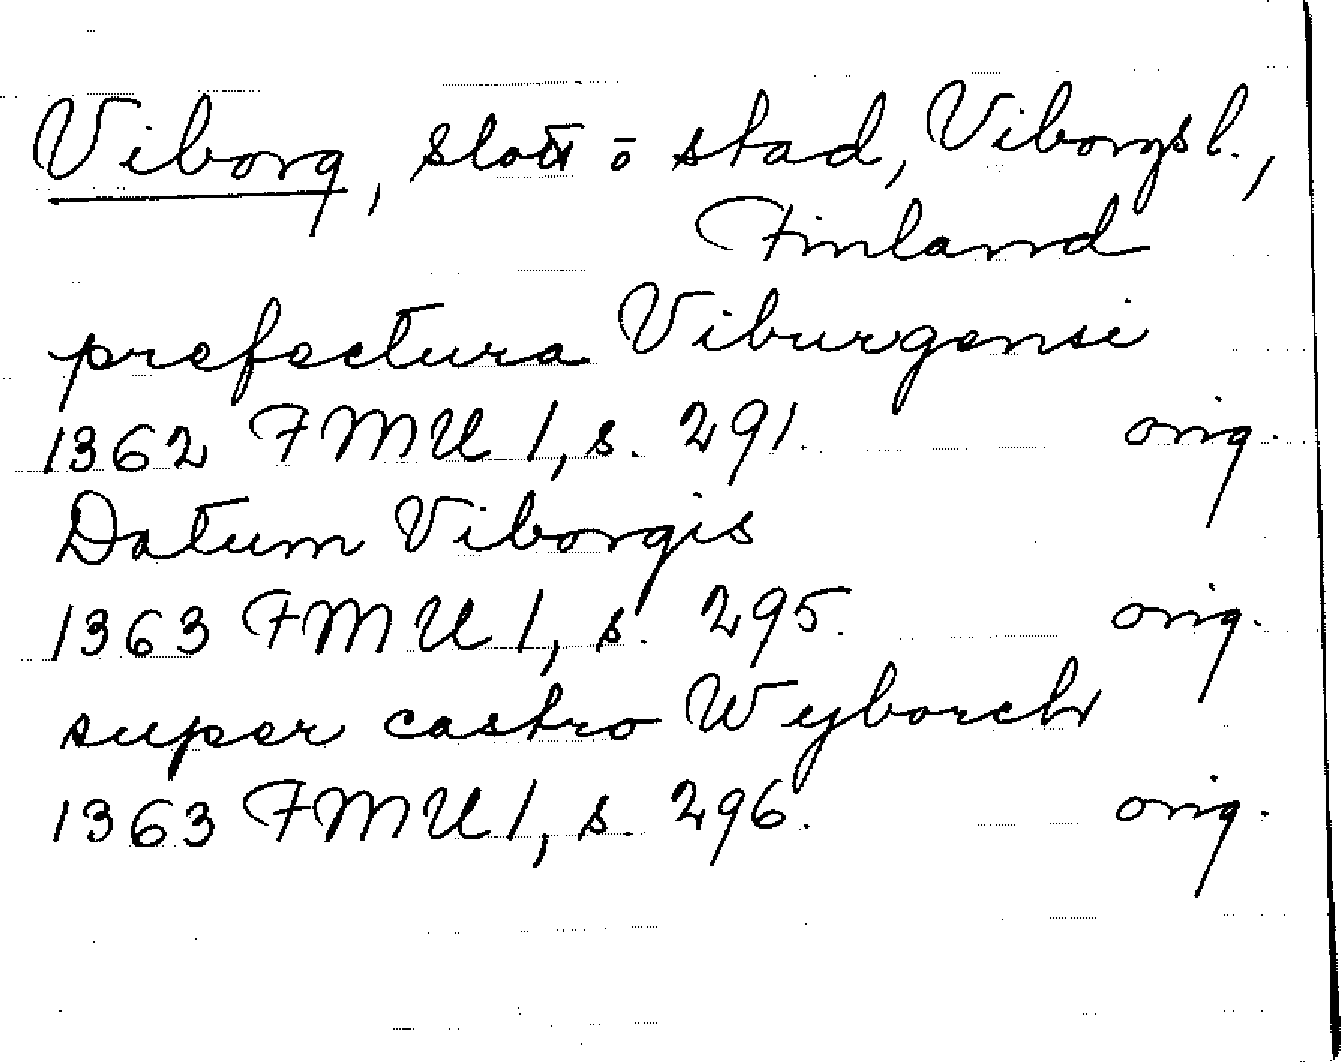 Viborg, slott o stad, Viborgs l.,
Finland
prefectura Viburgensi
1362 FMU 1, s. 291. orig.
Datum Viborgis
1363 FMU 1, s. 295. orig.
super castro Wyborch
1363 FMU 1, s. 296. orig.